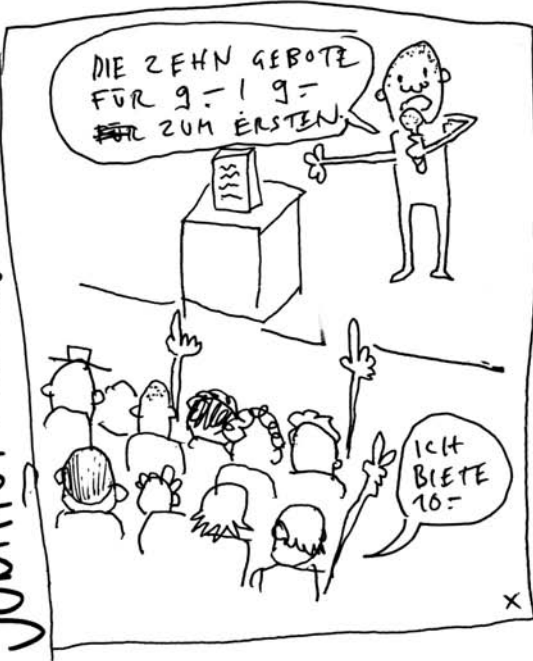 DIE ZEHN GEBOTE
FÜR 9.- ! 9.-
ZUM ERSTEN.
ICH
BIETE
10.-
X